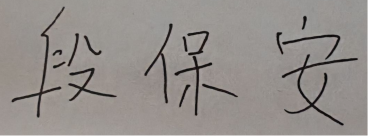 段保安